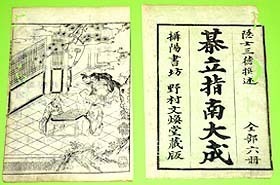 隱士三徳撰述
全部六冊
碁立指南大成
攝陽書坊 野村文煥堂藏版